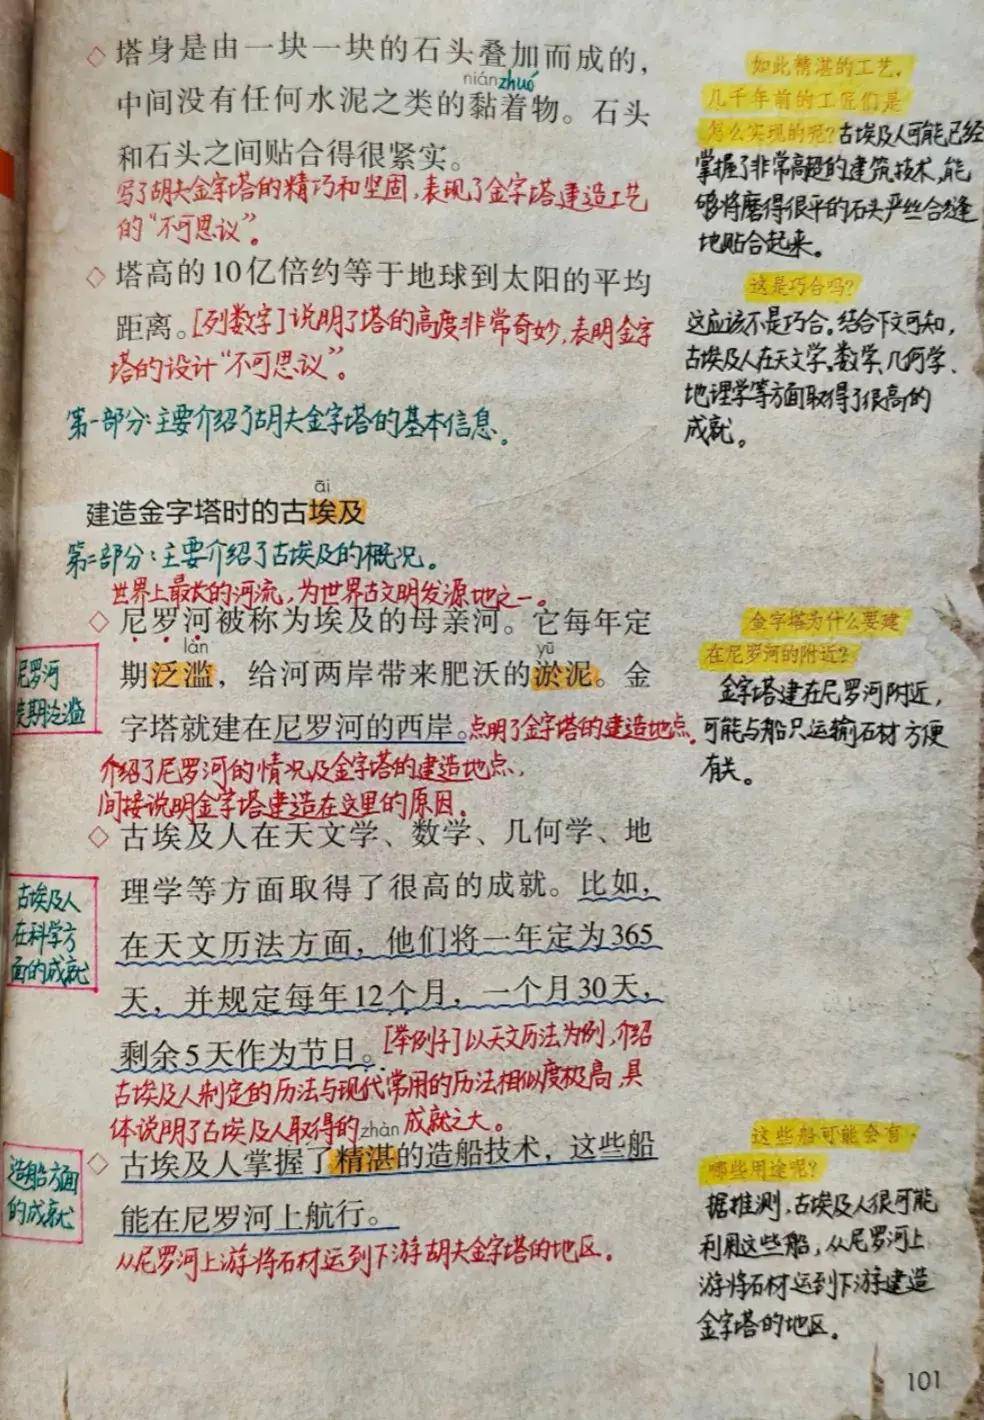 塔身是由一块一块的石头叠加而成的，
nián zhuó
中间没有任何水泥之类的黏着物。石头
和石头之间贴合得很紧实。
写了胡夫金字塔的精巧和坚固，表现了金字塔建造工艺
的“不可思议”。
如此精湛的工艺，
几千年前的工匠们是
怎么实现的呢？古埃及人可能已经
掌握了非常高超的建筑技术，能
够将磨得很平的石头严丝合缝
地贴合起来。
塔高的10亿倍约等于地球到太阳的平均
距离。[列数字]说明了塔的高度非常奇妙，表明金字
塔的设计“不可思议”。
这是巧合吗？
这应该不是巧合。结合下文可知，
古埃及人在天文学、数学、几何学、
地理学等方面取得了很高的
成就。
第一部分：主要介绍了胡夫金字塔的基本信息。
āi
建造金字塔时的古埃及
第二部分：主要介绍了古埃及的概况。
世界上最长的河流，为世界古文明发源地之一。
尼罗河被称为埃及的母亲河。它每年定
làn yū
期泛滥，给河两岸带来肥沃的淤泥。金
字塔就建在尼罗河的西岸。点明了金字塔的建造地点。
介绍了尼罗河的情况及金字塔的建造地点，
间接说明金字塔建造在这里的原因。
尼罗河
定期泛滥
金字塔为什么要建
在尼罗河的附近？
金字塔建在尼罗河附近，
可能与船只运输石材方便
有关。
古埃及人在天文学、数学、几何学、地
理学等方面取得了很高的成就。比如，
在天文历法方面，他们将一年定为365
天，并规定每年12个月，一个月30天，
剩余5天作为节日。[举例子]以天文历法为例，介绍
古埃及人制定的历法与现代常用的历法相似度极高，具
体说明了古埃及人取得的成就之大。
古埃及人
在科学方
面的成就
zhàn
古埃及人掌握了精湛的造船技术，这些船
能在尼罗河上航行。
从尼罗河上游将石材运到下游胡夫金字塔的地区。
造船方面
的成就
这些船可能会有
哪些用途呢？
据推测，古埃及人很可能
利用这些船，从尼罗河上
游将石材运到下游建造
金字塔的地区。
101